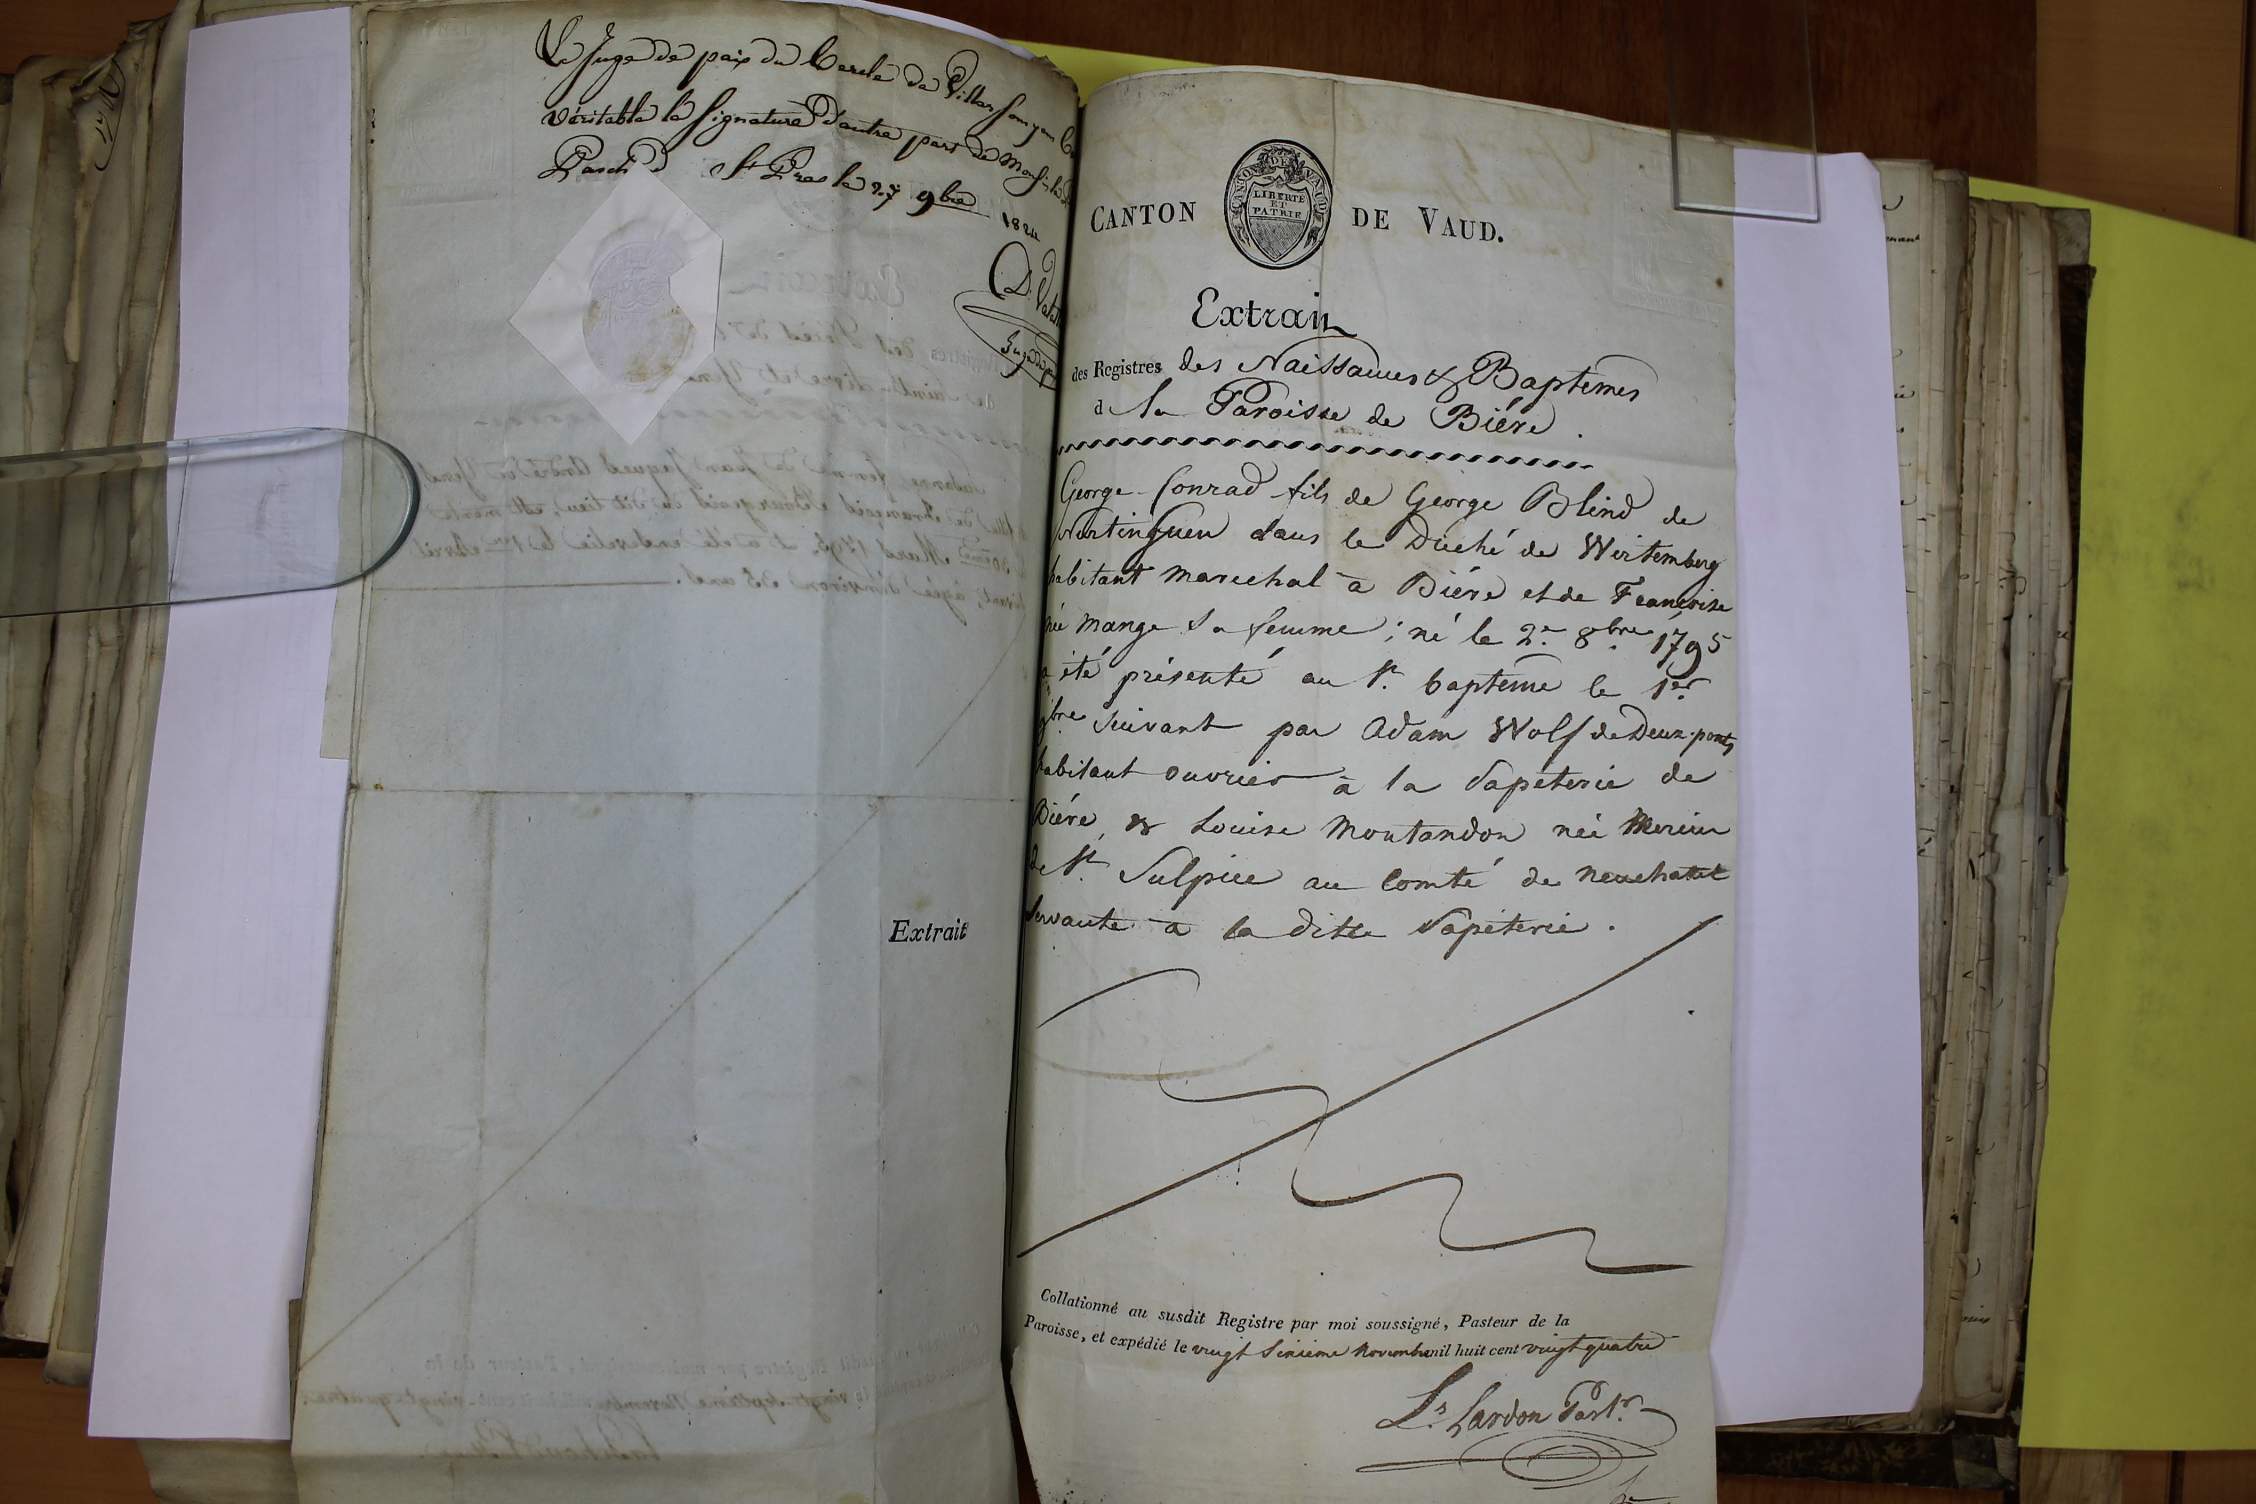 Le Juge de paix du Cercle de Villars sous yens
véritable la signature d'autre part de Monsr le
St Prex le 27 9bre 1824
Juge de paix
Extrait
CANTON DE VAUD.
CANTON DE VAUD
LIBERTÉ
ET
PATRIE
Extrait
des Registres des Naissances & Baptêmes
de la Paroisse de Biére.
George Conrad fils de George Blind de
Nürtinguen dans le Duché de Wirtemberg
habitant marechal à Biére et de Françoise
née Mange sa femme; né le 2e 8bre 1795
a été présenté au St. baptême le 1er
9bre suivant par Adam Wolf de Deux-ponts
habitant ouvrier à la Papéterie de
Biére, & Louise Montandon née
de St. Sulpice au Comté de Neuchatel
servante à la ditte Papéterie.
Collationné au susdit Registre par moi soussigné, Pasteur de la
Paroisse, et expédié le vingt sixieme Novembre mil huit cent vingt quatre
Ls Lardon Pastr.